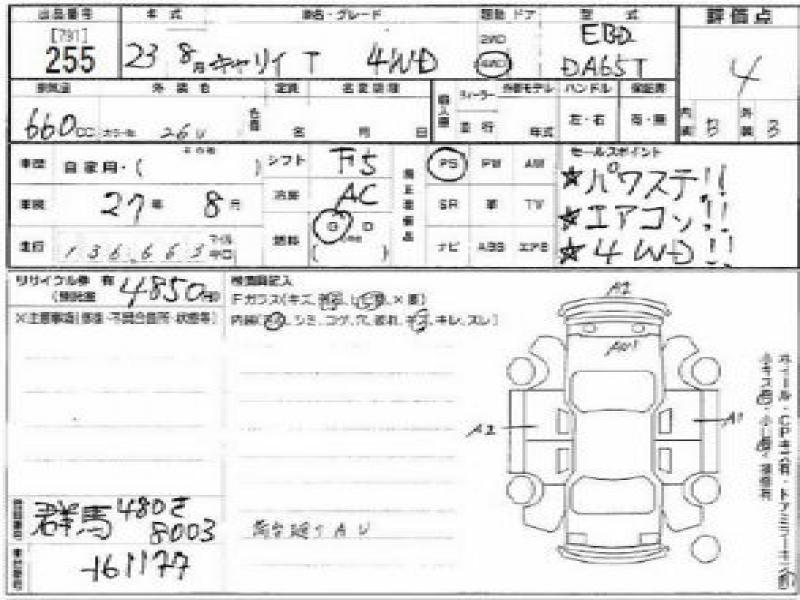 出品番号 年式 車名・グレード 駆動 ドア 型式 評価点
[791]
255 23 8月 キャリイ T 4WD 2WD 4WD EBD DA65T 4
排気量 外装色 定員 名変期限 ディーラー 外部モデル ハンドル 保証書 内装 外装
660cc カラーNo. 26U 色替 名 月 日 並行 年式 左・右 有・無 B B
車歴 自家用・( その他 ) シフト F5 PS PW AW セールスポイント
☆パワステ!!
車検 27年 8月 冷房 AC SR 革 TV
☆エアコン!!
走行 136,663 マイル キロ 燃料 G D ( その他 ) ナビ ABS エアB
☆4WD!!
リサイクル券 有 4850円 (預託金
検査員記入
Fガラス(キズ、
※注意事項(修復・不具合箇所・状態等)
内装( シミ、コゲ、穴、 キズ、キレ、スレ)
A2
AW1
A2
A1
ホイール・CPキズ有・ドアミラーキズ
小キズ有・小凹有・補修有
登録番号 群馬 480き
8003
荷台廻りAU
車台番号 161177